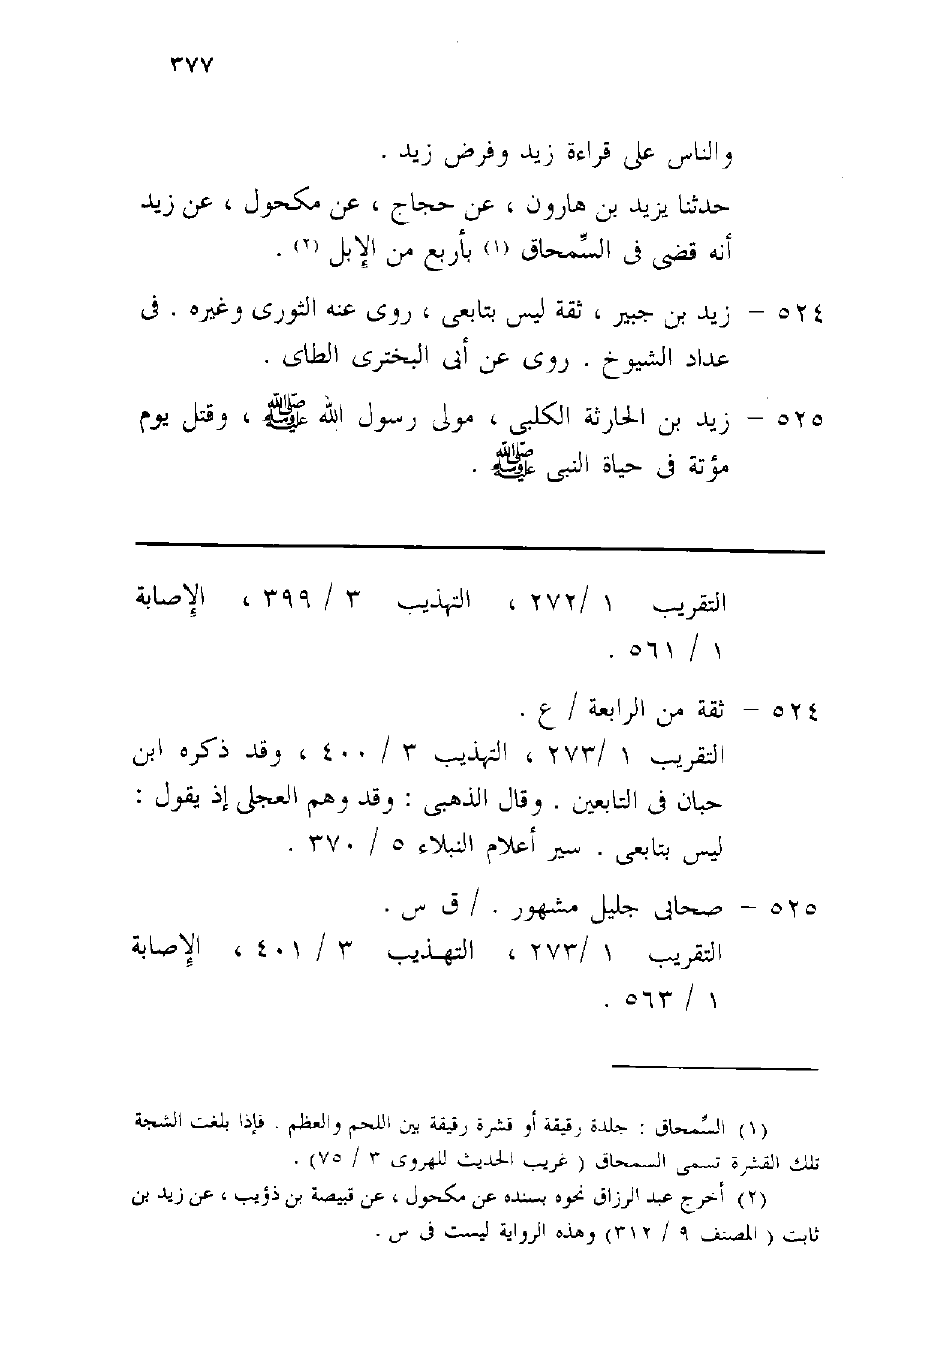 ٣٧٧
والناس على قراءة زيد وفرض زيد .
حدثنا يزيد بن هارون ، عن حجاج ، عن مكحول ، عن زيد
أنه قضى فى السِّمحاق (١) بأربع من الإبل (٢) .
٥٢٤ – زيد بن جبير ، ثقة ليس بتابعى ، روى عنه الثورى وغيره . فى
عداد الشيوخ . روى عن أبى البخترى الطاى .
٥٢٥ – زيد بن الحارثة الكلبى ، مولى رسول الله ﷺ ، وقتل يوم
مؤتة فى حياة النبى ﷺ .
التقريب ١ /٢٧٢ ، التهذيب ٣ / ٣٩٩ ، الإصابة
١ / ٥٦١ .
٥٢٤ – ثقة من الرابعة / ع .
التقريب ١ /٢٧٣ ، التهذيب ٣ / ٤٠٠ ، وقد ذكره ابن
حبان فى التابعين . وقال الذهبى : وقد وهم العجلى إذ يقول :
ليس بتابعى . سير أعلام النبلاء ٥ / ٣٧٠ .
٥٢٥ – صحابى جليل مشهور . / ق س .
التقريب ١ /٢٧٣ ، التهـذيب ٣ / ٤٠١ ، الإصابة
١ / ٥٦٣ .
(١) السِّمحاق : جلدة رقيقة أو قشرة رقيقة بين اللحم والعظم . فإذا بلغت الشجة
تلك القشرة تسمى السمحاق ( غريب الحديث للهروى ٣ / ٧٥) .
(٢) أخرج عبد الرزاق نحوه بسنده عن مكحول ، عن قبيصة بن ذؤيب ، عن زيد بن
ثابت ( المصنف ٩ / ٣١٢) وهذه الرواية ليست فى س .